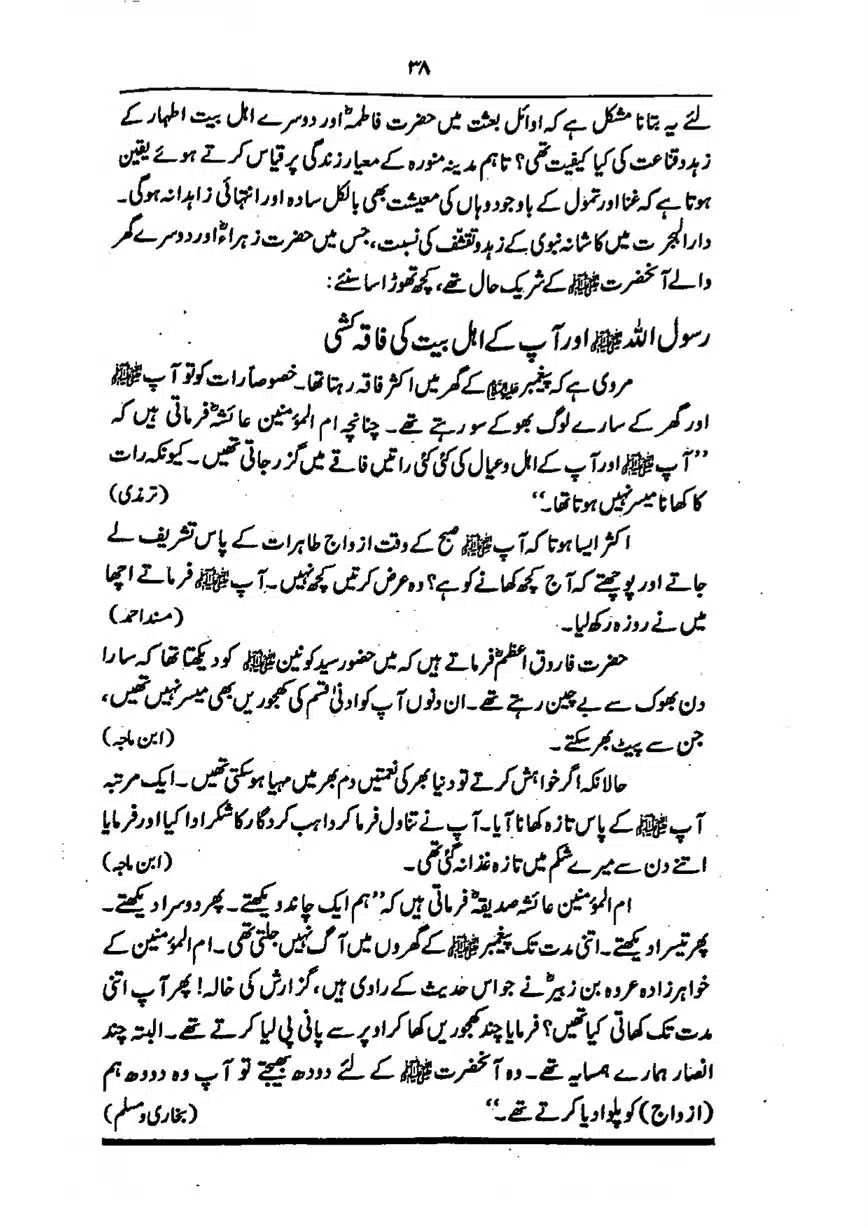 ۳۸
لئے یہ بتانا مشکل ہے کہ اوائل بعثت میں حضرت فاطمہؓ اور دوسرے اہل بیت اطہار کے
زہد و قناعت کی کیا کیفیت تھی؟ تاہم مدینہ منورہ کے معیار زندگی پر قیاس کرتے ہوئے یقین
ہوتا ہے کہ غنا اور تموّل کے باوجود وہاں کی معیشت بھی بالکل سادہ اور انتہائی زاہدانہ ہوگی۔
دارالہجرت میں کاشانہ نبوی کے زہد و تقشّف کی نسبت، جس میں حضرت زہراءؓ اور دوسرے گھر
والے آنحضرت ﷺ کے شریک حال تھے، کچھ تھوڑا سا سنئے:
رسول اللہ ﷺ اور آپ کے اہل بیت کی فاقہ کشی
مروی ہے کہ پیغمبر ﷺ کے گھر میں اکثر فاقہ رہتا تھا۔ خصوصاً رات کو تو آپ ﷺ
اور گھر کے سارے لوگ بھوکے سو رہتے تھے۔ چنانچہ ام المؤمنین عائشہؓ فرماتی ہیں کہ
”آپ ﷺ اور آپ کے اہل و عیال کی کئی کئی راتیں فاقے میں گزر جاتی تھیں۔ کیونکہ رات
کا کھانا میسر نہیں ہوتا تھا۔“ (ترمذی)
اکثر ایسا ہوتا کہ آپ ﷺ صبح کے وقت ازواج طاہرات کے پاس تشریف لے
جاتے اور پوچھتے کہ آج کچھ کھانے کو ہے؟ وہ عرض کرتیں کچھ نہیں۔ آپ ﷺ فرماتے اچھا
میں نے روزہ رکھ لیا۔ (مسند احمد)
حضرت فاروق اعظمؓ فرماتے ہیں کہ میں حضور سید کونین ﷺ کو دیکھتا تھا کہ سارا
دن بھوک سے بے چین رہتے تھے۔ ان دنوں آپ کو ادنیٰ قسم کی کھجوریں بھی میسر نہیں تھیں،
جن سے پیٹ بھر سکتے۔ (ابن ماجہ)
حالانکہ اگر خواہش کرتے تو دنیا بھر کی نعمتیں دم بھر میں مہیا ہو سکتی تھیں۔ ایک مرتبہ
آپ ﷺ کے پاس تازہ کھانا آیا۔ آپ نے تناول فرما کر واہب کردگار کا شکر ادا کیا اور فرمایا
اتنے دن سے میرے شکم میں تازہ غذا نہ گئی تھی۔ (ابن ماجہ)
ام المؤمنین عائشہ صدیقہؓ فرماتی ہیں کہ ”ہم ایک چاند دیکھتے۔ پھر دوسرا دیکھتے۔
پھر تیسرا دیکھتے۔ اتنی مدت تک پیغمبر ﷺ کے گھروں میں آگ نہیں جلتی تھی۔ ام المؤمنین کے
خواہرزادہ عروہ بن زبیرؓ نے جو اس حدیث کے راوی ہیں، گزارش کی خالہ! پھر آپ اتنی
مدت تک کھاتی کیا تھیں؟ فرمایا چند کھجوریں کھا کر اوپر سے پانی پی لیا کرتے تھے۔ البتہ چند
انصار ہمارے ہمسایہ تھے۔ وہ آنحضرت ﷺ کے لئے دودھ بھیجتے تو آپ وہ دودھ ہم
(ازواج) کو پلوا دیا کرتے تھے۔“ (بخاری و مسلم)